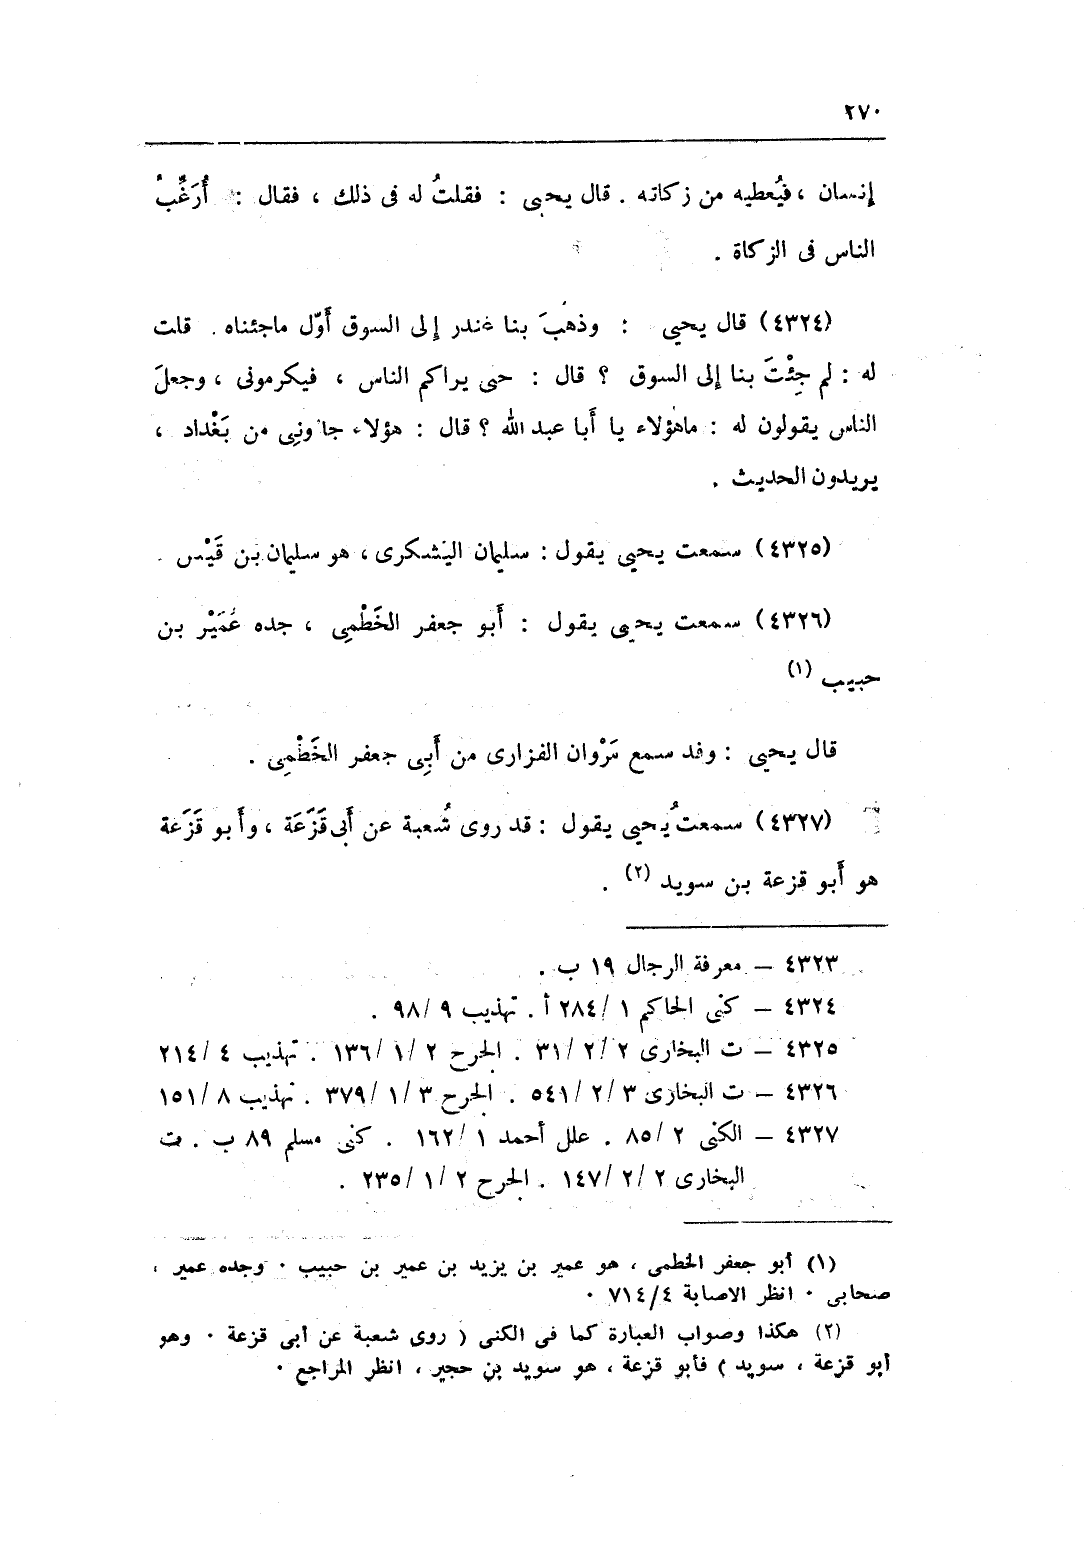 ٢٧٠
إنسان ، فيُعطيه من زكاته . قال يحيى : فقلتُ له فى ذلك ، فقال : أُرَغِّبُ
الناس فى الزكاة .
(٤٣٢٤) قال يحيى : وذهبَ بنا غندر إلى السوق أَوّل ماجئناه . قلت
له : لم جِئْتَ بنا إلى السوق ؟ قال : حتى يراكم الناس ، فيكرمونى ، وجعلَ
الناس يقولون له : ماهؤلاء يا أَبا عبد الله ؟ قال : هؤلاء جاءونِى من بَغْداد ،
يريدون الحديث .
(٤٣٢٥) سمعت يحيى يقول : سليمان اليَشكرى ، هو سليمان بن قَيْس .
(٤٣٢٦) سمعت يحيى يقول : أَبو جعفر الخَطْمِى ، جده عُمَيْر بن
حبيب (١)
قال يحيى : وقد سمع مَرْوان الفزارى من أَبِى جعفر الخَطْمِى .
(٤٣٢٧) سمعتُ يُحيى يقول : قد روى شُعبة عن أَبى قَزَعَة ، وأَبو قَزَعة
هو أَبو قزعة بن سويد (٢) .
٤٣٢٣ – معرفة الرجال ١٩ ب .
٤٣٢٤ – كنى الحاكم ١ /٢٨٤ أ . تهذيب ٩ /٩٨ .
٤٣٢٥ – ت البخارى ٢ /٢ /٣١ . الجرح ٢ /١ /١٣٦ . تهذيب ٤ /٢١٤
٤٣٢٦ – ت البخارى ٣ /٢ /٥٤١ . الجرح ٣ /١ /٣٧٩ . تهذيب ٨ /١٥١
٤٣٢٧ – الكنى ٢ /٨٥ . علل أحمد ١ /١٦٢ . كنى مسلم ٨٩ ب . ت
البخارى ٢ /٢ /١٤٧ . الجرح ٢ /١ /٢٣٥ .
(١) أبو جعفر الخطمى ، هو عمير بن يزيد بن عمير بن حبيب ٠ وجده عمير ،
صحابى ٠ انظر الاصابة ٤/٧١٤ ٠
(٢) هكذا وصواب العبارة كما فى الكنى ( روى شعبة عن أبى قزعة ٠ وهو
أبو قزعة ، سويد ) فأبو قزعة ، هو سويد بن حجير ، انظر المراجع ٠